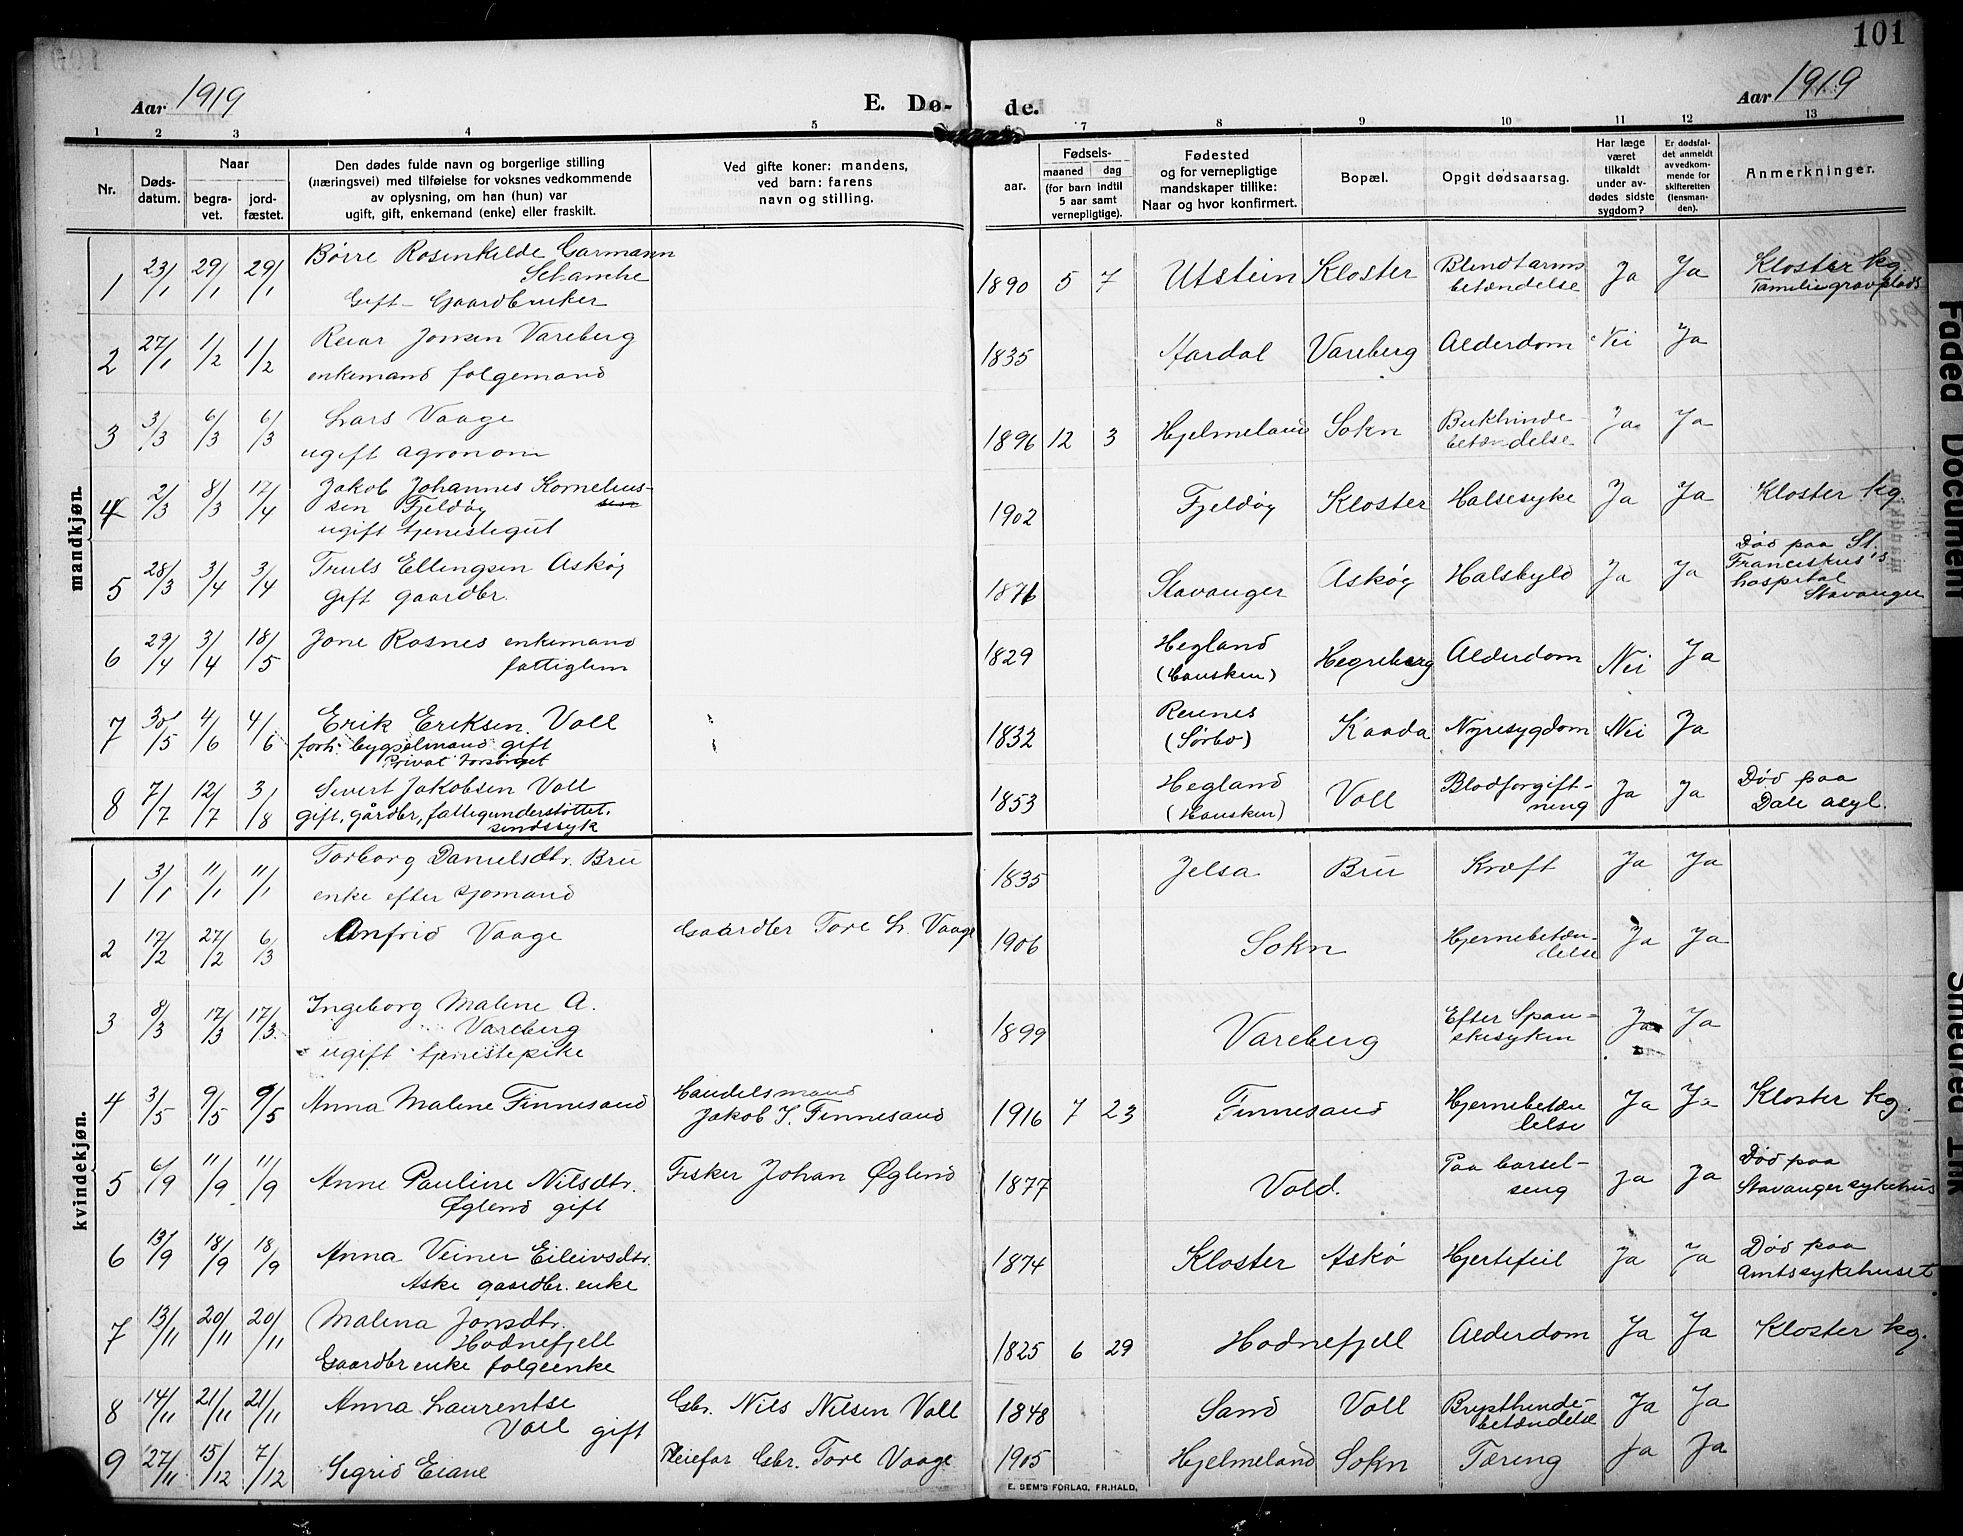 101
Aar 1919 E. Dø- de. Aar 1919
1 2 3 4 5 6 7 8 9 10 11 12 13
Nr. Døds-datum. Naar begra-vet. jord-fæstet. Den dødes fulde navn og borgerlige stilling (næringsvei) med tilføielse for voksnes vedkommende av oplysning, om han (hun) var ugift, gift, enkemand (enke) eller fraskilt. Ved gifte koner: mandens, ved barn: farens navn og stilling. Fødsels- aar. maaned dag (for barn indtil 5 aar samt vernepligtige). Fødested og for vernepligtige mandskaper tillike: Naar og hvor konfirmert. Bopæl. Opgit dødsaarsag. Har læge været tilkaldt under av-dødes sidste sygdom? Er dødsfal-det anmeldt av vedkom-mende for skifteretten (lensman-den). Anmerkninger.
mandkjøn.
1 23/1 29/1 29/1 Børre Rosenkilde Garmann Schanche Gift - Gaardbruker 1890 5 7 Utstein Kloster Blindtarms betændelse Ja Ja Kloster kg. Familiegravplads
2 27/1 1/2 1/2 Reiar Jonsen Vareberg enkemand folgemand 1835 Aardal Vareberg Alderdom Nei Ja
3 3/3 6/3 6/3 Lars Vaage ugift agronom 1896 12 3 Hjelmeland Sokn Bukhinde-betændelse Ja Ja
4 2/3 8/3 17/4 Jakob Johannes Kornelius-sen Fjeldøy ugift tjenestegut 1902 Fjeldøy Kloster Halsesyke Ja Ja Kloster kg.
5 28/3 3/4 3/4 Truls Ellingsen Askøy gift gaardbr. 1871 Stavanger Askøy Halsbyld Ja Ja Død paa St. Franciskus's hospital Stavanger
6 29/4 3/4 18/5 Jone Rosnes enkemand fattiglem 1829 Hegland (Hausken) Hegreberg Alderdom Nei Ja
7 30/5 4/6 4/6 Erik Eriksen Voll forh. bygselmand gift Privat forsørget 1832 Reienes (Sørbø) Kaada Nyresygdom Nei Ja
8 7/7 12/7 3/8 Sivert Jakobsen Voll gift. gårdbr, fattigunderstøttet. sindssyk 1853 Hegland (Hausken) Voll Blodforgift-ning Ja Ja Død paa Dale asyl.
kvindekjøn.
1 3/1 11/1 11/1 Torborg Danielsdtr. Bru enke efter sjømand 1835 Jelsa Bru Kræft Ja Ja
2 17/2 27/2 6/3 Anfrid Vaage Gaardbr Tore L. Vaage 1906 Sokn Hjernebetæn-delse Ja Ja
3 8/3 17/3 17/3 Ingeborg Malene A. Vareberg ugift tjenestepike 1899 Vareberg Efter Span-skesyken Ja Ja
4 3/5 9/5 9/5 Anna Malene Finnesand Handelsmand Jakob J. Finnesand 1916 7 23 Finnesand Hjernebetæn delse Ja Ja Kloster kg.
5 6/9 11/9 11/9 Anne Pauline Nilsdtr. Øglend gift Fisker Johan Øglend 1877 Vold. Paa barsel-seng Ja Ja Død paa Stavanger sykehus
6 13/9 18/9 18/9 Anna Veiner Eileivsdtr. Aske gaardbr. enke 1874 Kloster Askø Hjertefeil Ja Ja Død paa Amtssykehuset
7 13/11 20/11 20/11 Malena Jonsdtr. Hodnefjell Gaardbr enke folgeenke 1825 6 29 Hodnefjell Alderdom Ja Ja Kloster kg.
8 14/11 21/11 21/11 Anna Laurentse Voll gift Gbr. Nils Nilsen Voll 1848 Sand Voll Brysthinde-betændelse Ja Ja
9 27/11 15/12 7/12 Sigrid Eiane Pleiefar Gbr. Tore Vaage 1905 Hjelmeland Sokn Tæring Ja Ja
E. SEM'S FORLAG, FR.HALD.
Faded Document
Smeared Ink